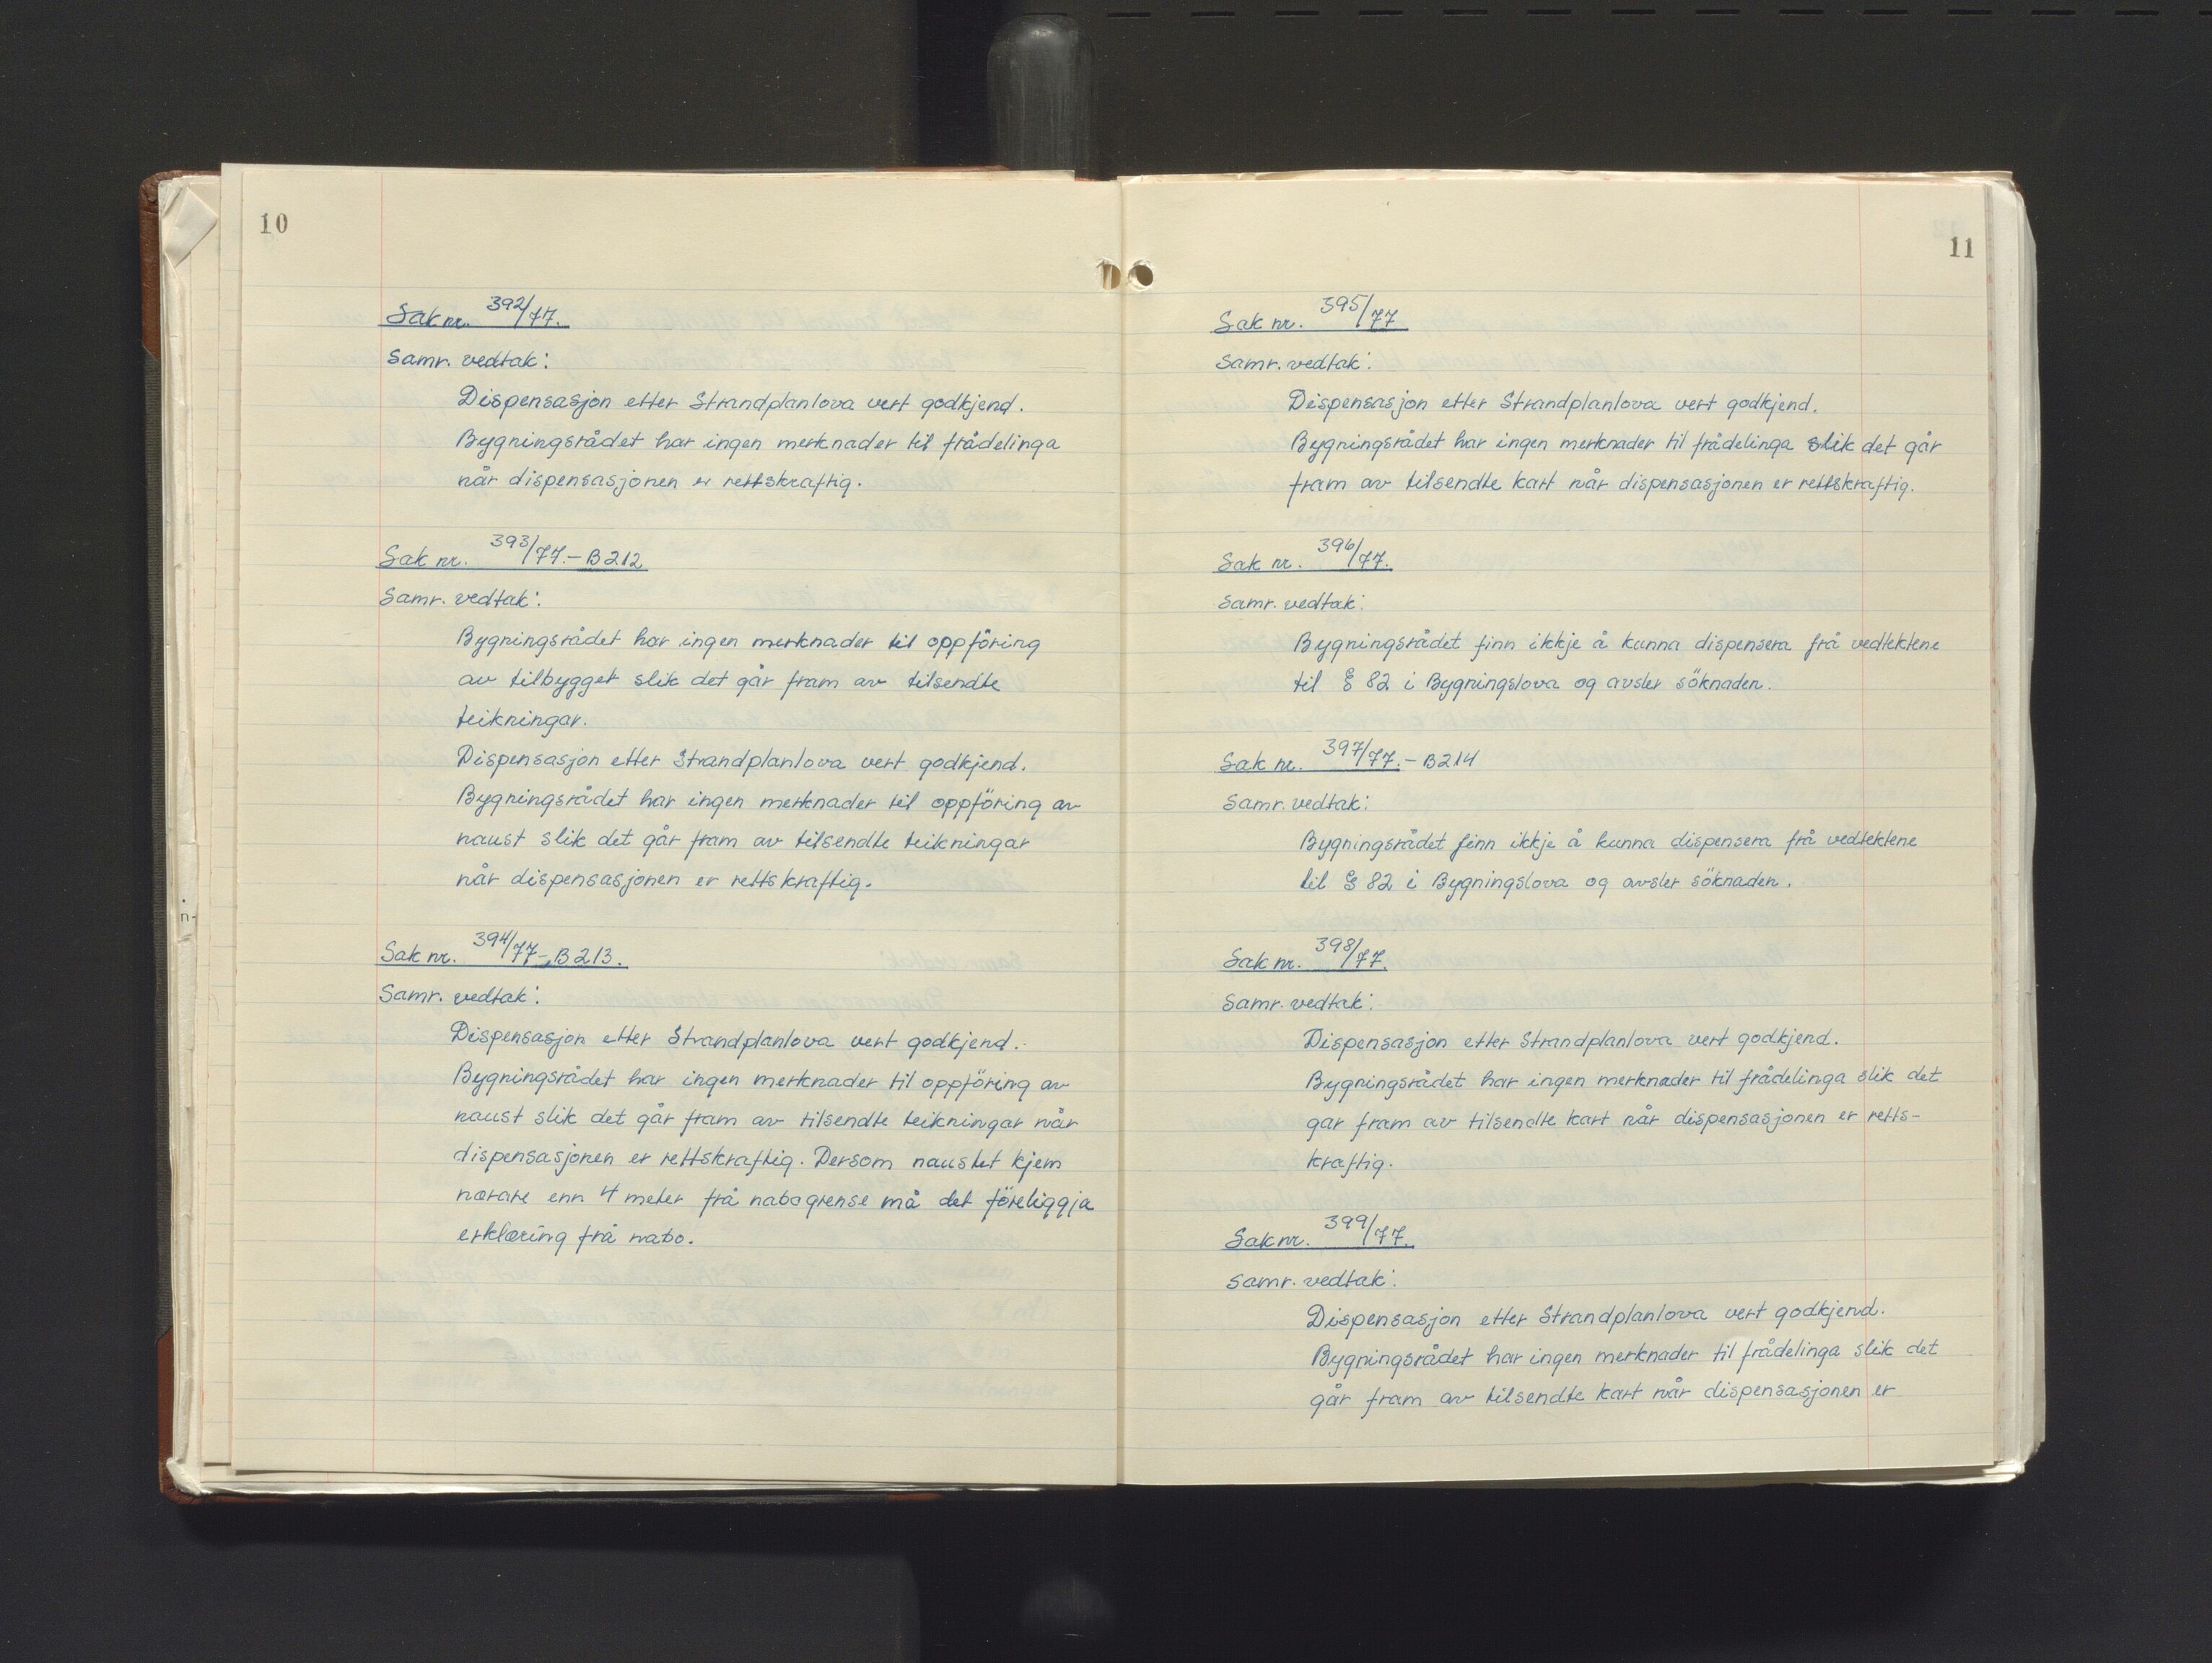 10
Sak nr. 392/77.
Samr. vedtak:
Dispensasjon etter Strandplanlova vert godkjend.
Bygningsrådet har ingen merknader til frådelinga
når dispensasjonen er rettskraftig.
Sak nr. 393/77.- B212
Samr. vedtak:
Bygningsrådet har ingen merknader til oppföring
av tilbygget slik det går fram av tilsendte
teikningar.
Dispensasjon etter Strandplanlova vert godkjend.
Bygningsrådet har ingen merknader til oppföring av
naust slik det går fram av tilsendte teikningar
når dispensasjonen er rettskraftig.
Sak nr. 394/77-B213.
Samr. vedtak:
Dispensasjon etter Strandplanlova vert godkjend.
Bygningsrådet har ingen merknader til oppföring av
naust slik det går fram av tilsendte teikningar når
dispensasjonen er rettskraftig. Dersom naustet kjem
nærare enn 4 meter frå nabogrense må det föreliggja
erklæring frå nabo.
11
Sak nr. 395/77
Samr. vedtak:
Dispensasjon etter Strandplanlova vert godkjend.
Bygningsrådet har ingen merknader til frådelinga slik det går
fram av tilsendte kart når dispensasjonen er rettskraftig.
Sak nr. 396/77.
Samr. vedtak:
Bygningsrådet finn ikkje å kunna dispensera frå vedtektene
til § 82 i Bygningslova og avsler söknaden.
Sak nr. 397/77.- B214
Samr. vedtak:
Bygningsrådet finn ikkje å kunna dispensera frå vedtektene
til § 82 i Bygningslova og avsler söknaden.
Sak nr. 398/77.
Samr. vedtak:
Dispensasjon etter Strandplanlova vert godkjend.
Bygningsrådet har ingen merknader til frådelinga slik det
gar fram av tilsendte kart når dispensasjonen er retts-
kraftig.
Sak nr. 399/77.
Samr. vedtak:
Dispensasjon etter Strandplanlova vert godkjend.
Bygningsrådet har ingen merknader til frådelinga slik det
går fram av tilsendte kart når dispensasjonen er